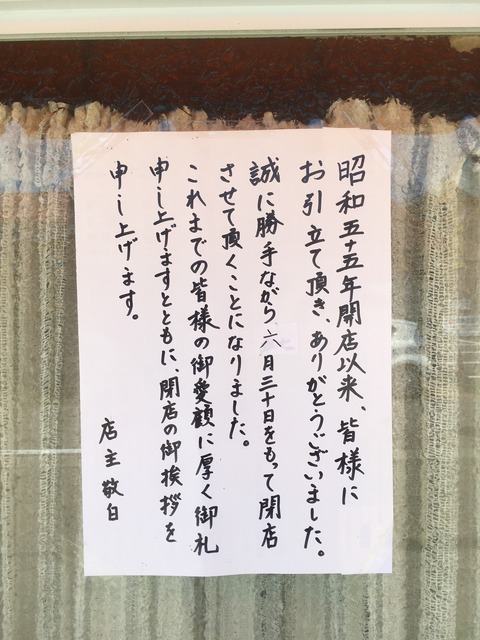 昭和五十五年開店以来、皆様に
お引立て頂き、ありがとうございました。
誠に勝手ながら、六月三十日をもって閉店
させて頂くことになりました。
これまでの皆様の御愛顧に厚く御札
申し上げますとともに、閉店の御挨拶を
申し上げます。
店主 敬白